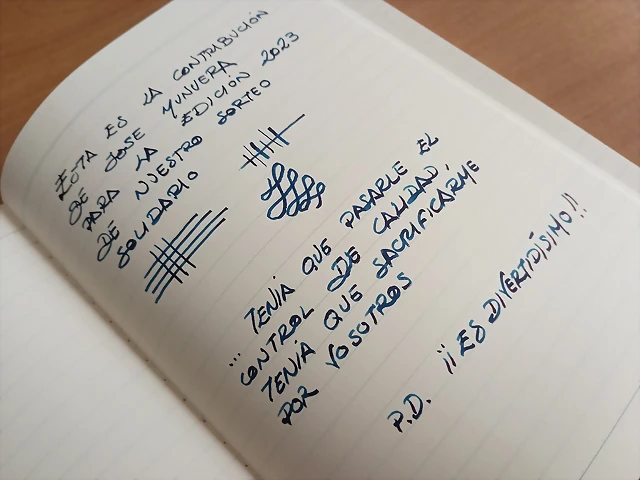 ESTA ES LA CONTRIBUCIÓN
DE JOSE YUNVERA
PARA LA EDICIÓN 2023
DE NUESTRO SORTEO
SOLIDARIO
... TENIA QUE PASARLE EL
CONTROL DE CALIDAD,
TENIA QUE SACRIFICARME
POR VOSOTROS
P.D. ¡¡ES DIVERTIDÍSIMO!!